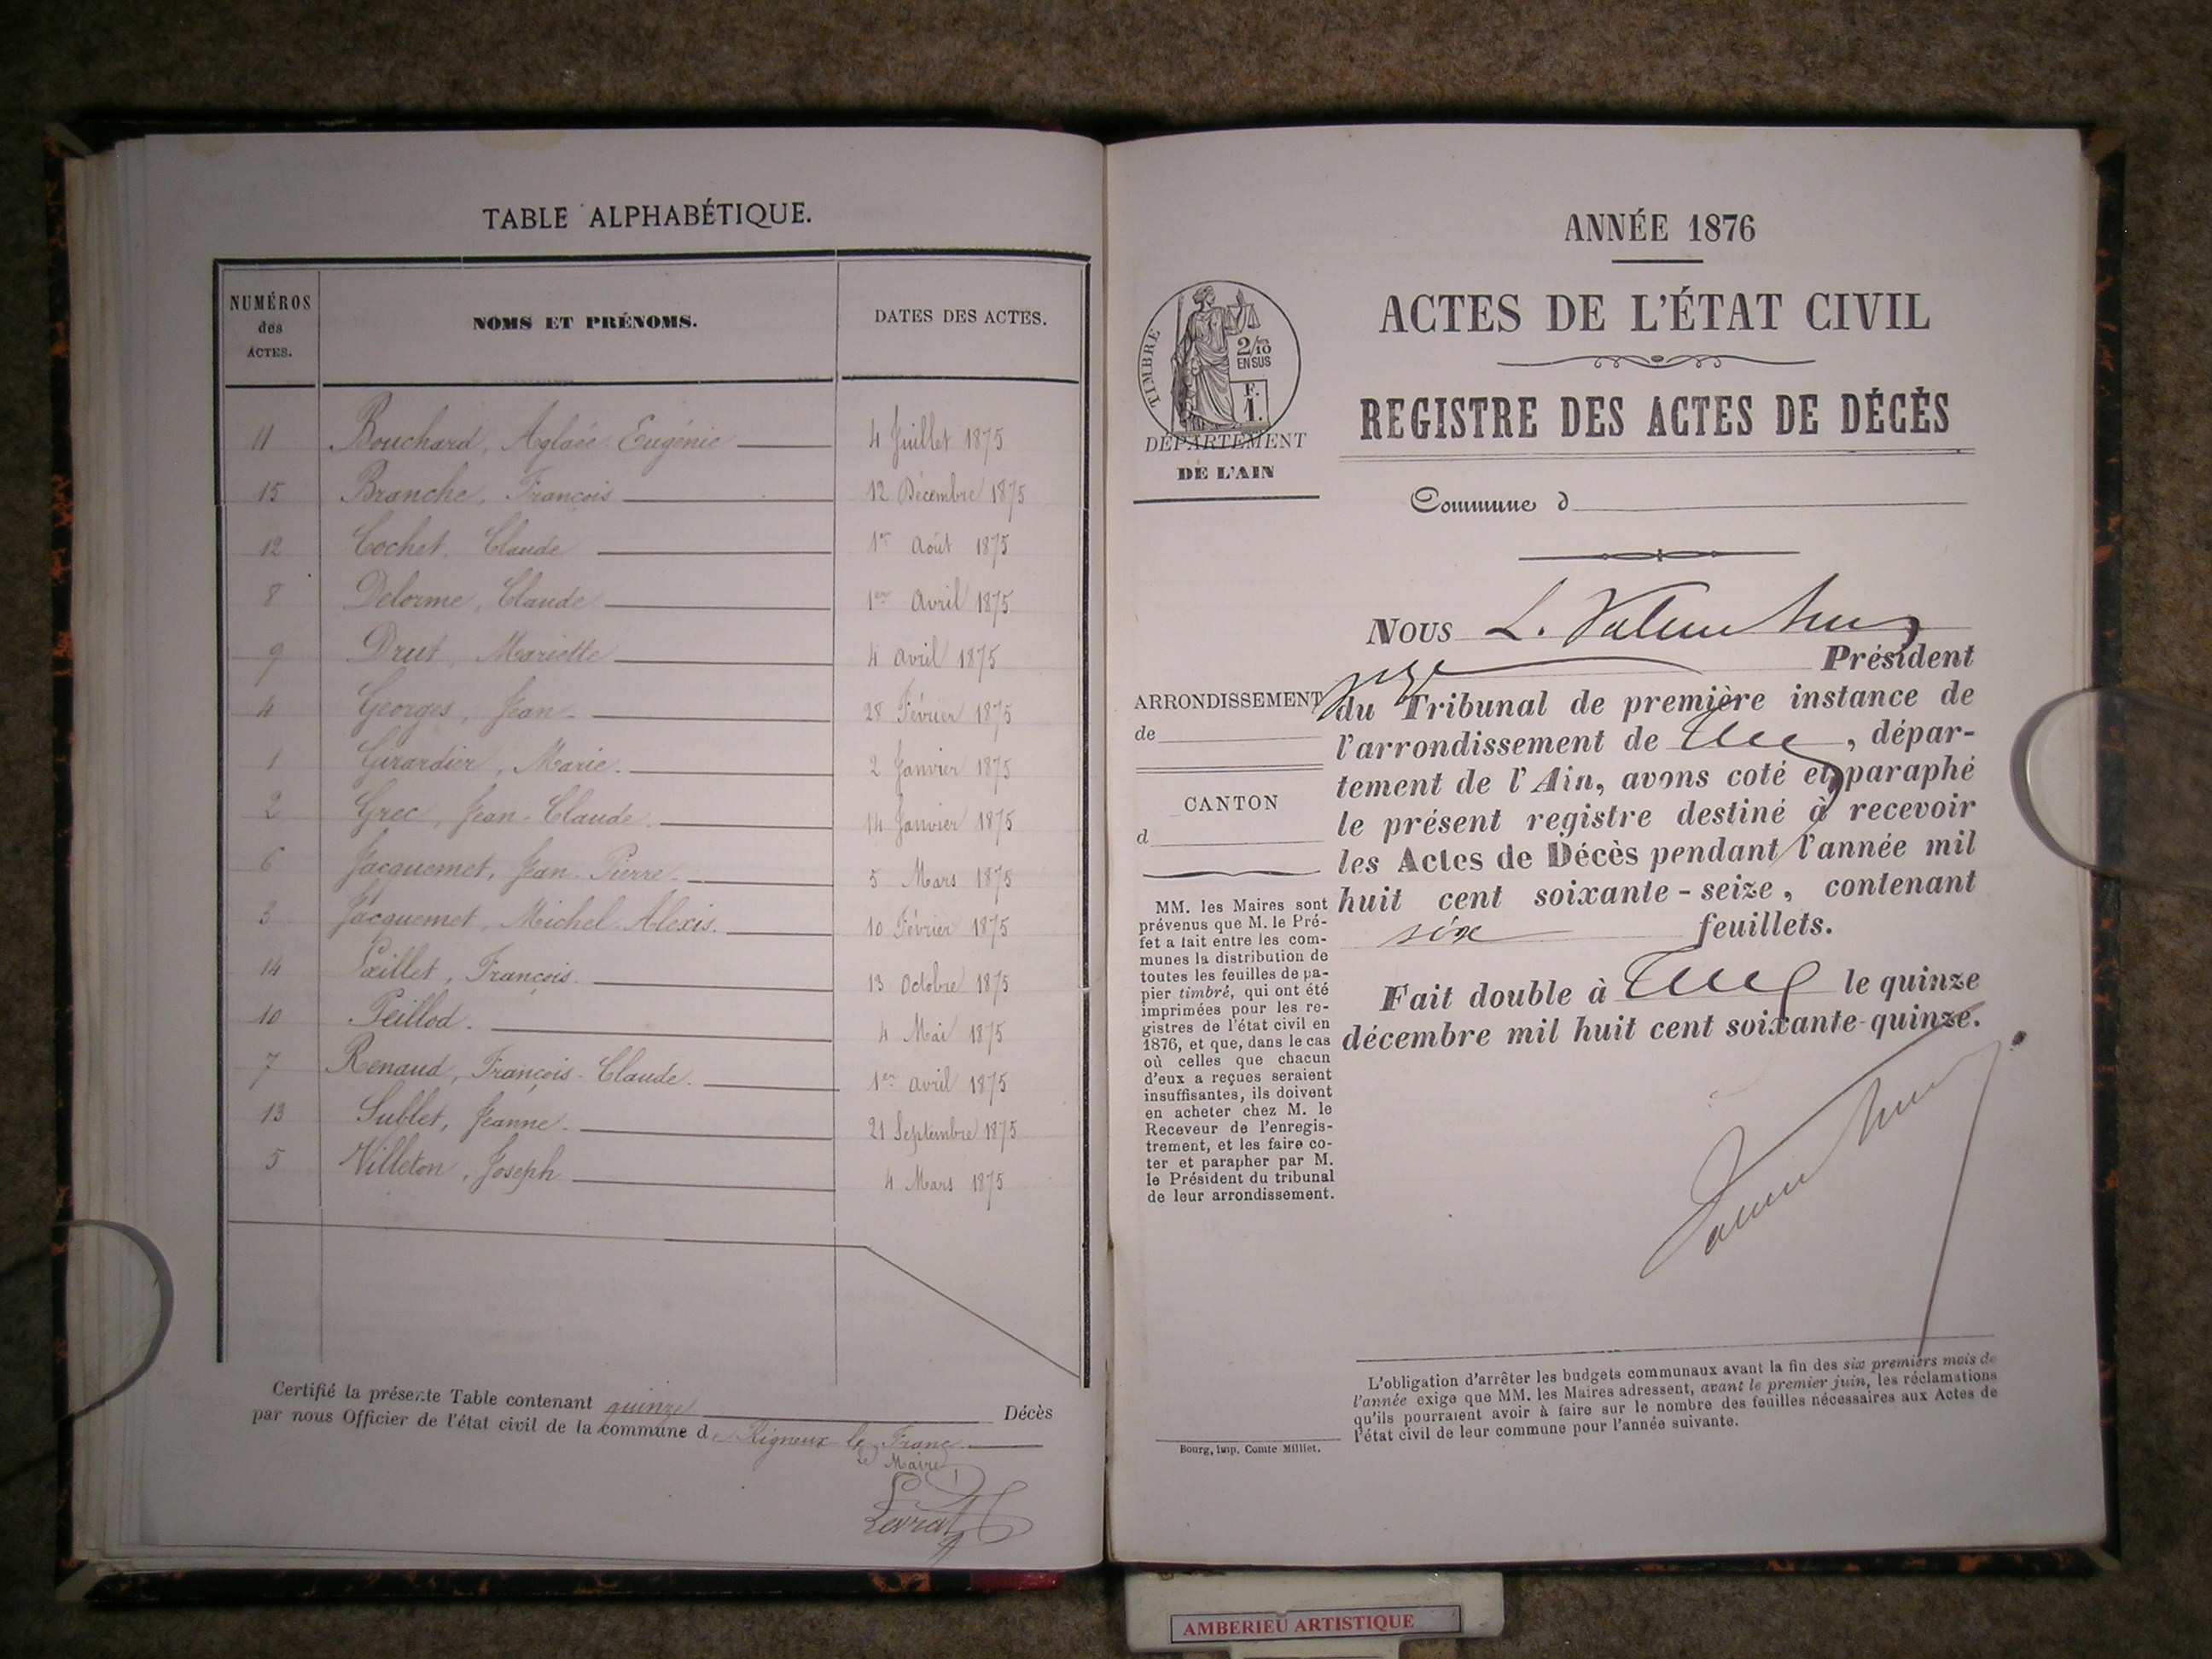 TABLE ALPHABÉTIQUE.
NUMÉROS des ACTES. NOMS ET PRÉNOMS. DATES DES ACTES.
11 Bouchard, Aglaée Eugénie 4 Juillet 1875
15 Branche, François 12 Décembre 1875
12 Cochet. Claude 1er Août 1875
8 Delorme, Claude 1er Avril 1875
9 Drut, Mariette 4 Avril 1875
4 Georges, Jean 28 Février 1875
1 Girardier, Marie. 2 Janvier 1875
2 Grec, Jean-Claude. 14 Janvier 1875
6 Jacquemet, Jean-Pierre. 5 Mars 1875
3 Jacquemet, Michel-Alexis. 10 Février 1875
14 François. 13 Octobre 1875
10 Peillod. 4 Mai 1875
7 Renaud, François-Claude. 1er Avril 1875
13 Sublet, Jeanne. 21 Septembre 1875
5 Villeton, Joseph 4 Mars 1875
Certifié la présente Table contenant quinze Décès
par nous Officier de l'état civil de la commune de Rigneux le Franc
Le Maire
Levrat
ANNÉE 1876
ACTES DE L'ÉTAT CIVIL
REGISTRE DES ACTES DE DÉCÈS
TIMBRE
2/10
EN SUS
F.
1.
DÉPARTEMENT
DE L'AIN
Commune d
Nous L.
juge Président
du Tribunal de première instance de
l'arrondissement de , dépar-
tement de l'Ain, avons coté et paraphé
le présent registre destiné à recevoir
les Actes de Décès pendant l'année mil
huit cent soixante-seize, contenant
six feuillets.
Fait double à le quinze
décembre mil huit cent soixante-quinze.
ARRONDISSEMENT
de
CANTON
d
MM. les Maires sont
prévenus que M. le Pré-
fet a fait entre les com-
munes la distribution de
toutes les feuilles de pa-
pier timbré, qui ont été
imprimées pour les re-
gistres de l'état civil en
1876, et que, dans le cas
où celles que chacun
d'eux a reçues seraient
insuffisantes, ils doivent
en acheter chez M. le
Receveur de l'enregis-
trement, et les faire co-
ter et parapher par M.
le Président du tribunal
de leur arrondissement.
L'obligation d'arrêter les budgets communaux avant la fin des six premiers mois de
l'année exige que MM. les Maires adressent, avant le premier juin, les réclamations
qu'ils pourraient avoir à faire sur le nombre des feuilles nécessaires aux Actes de
l'état civil de leur commune pour l'année suivante.
Bourg, imp. Comte Milliet.
AMBERIEU ARTISTIQUE